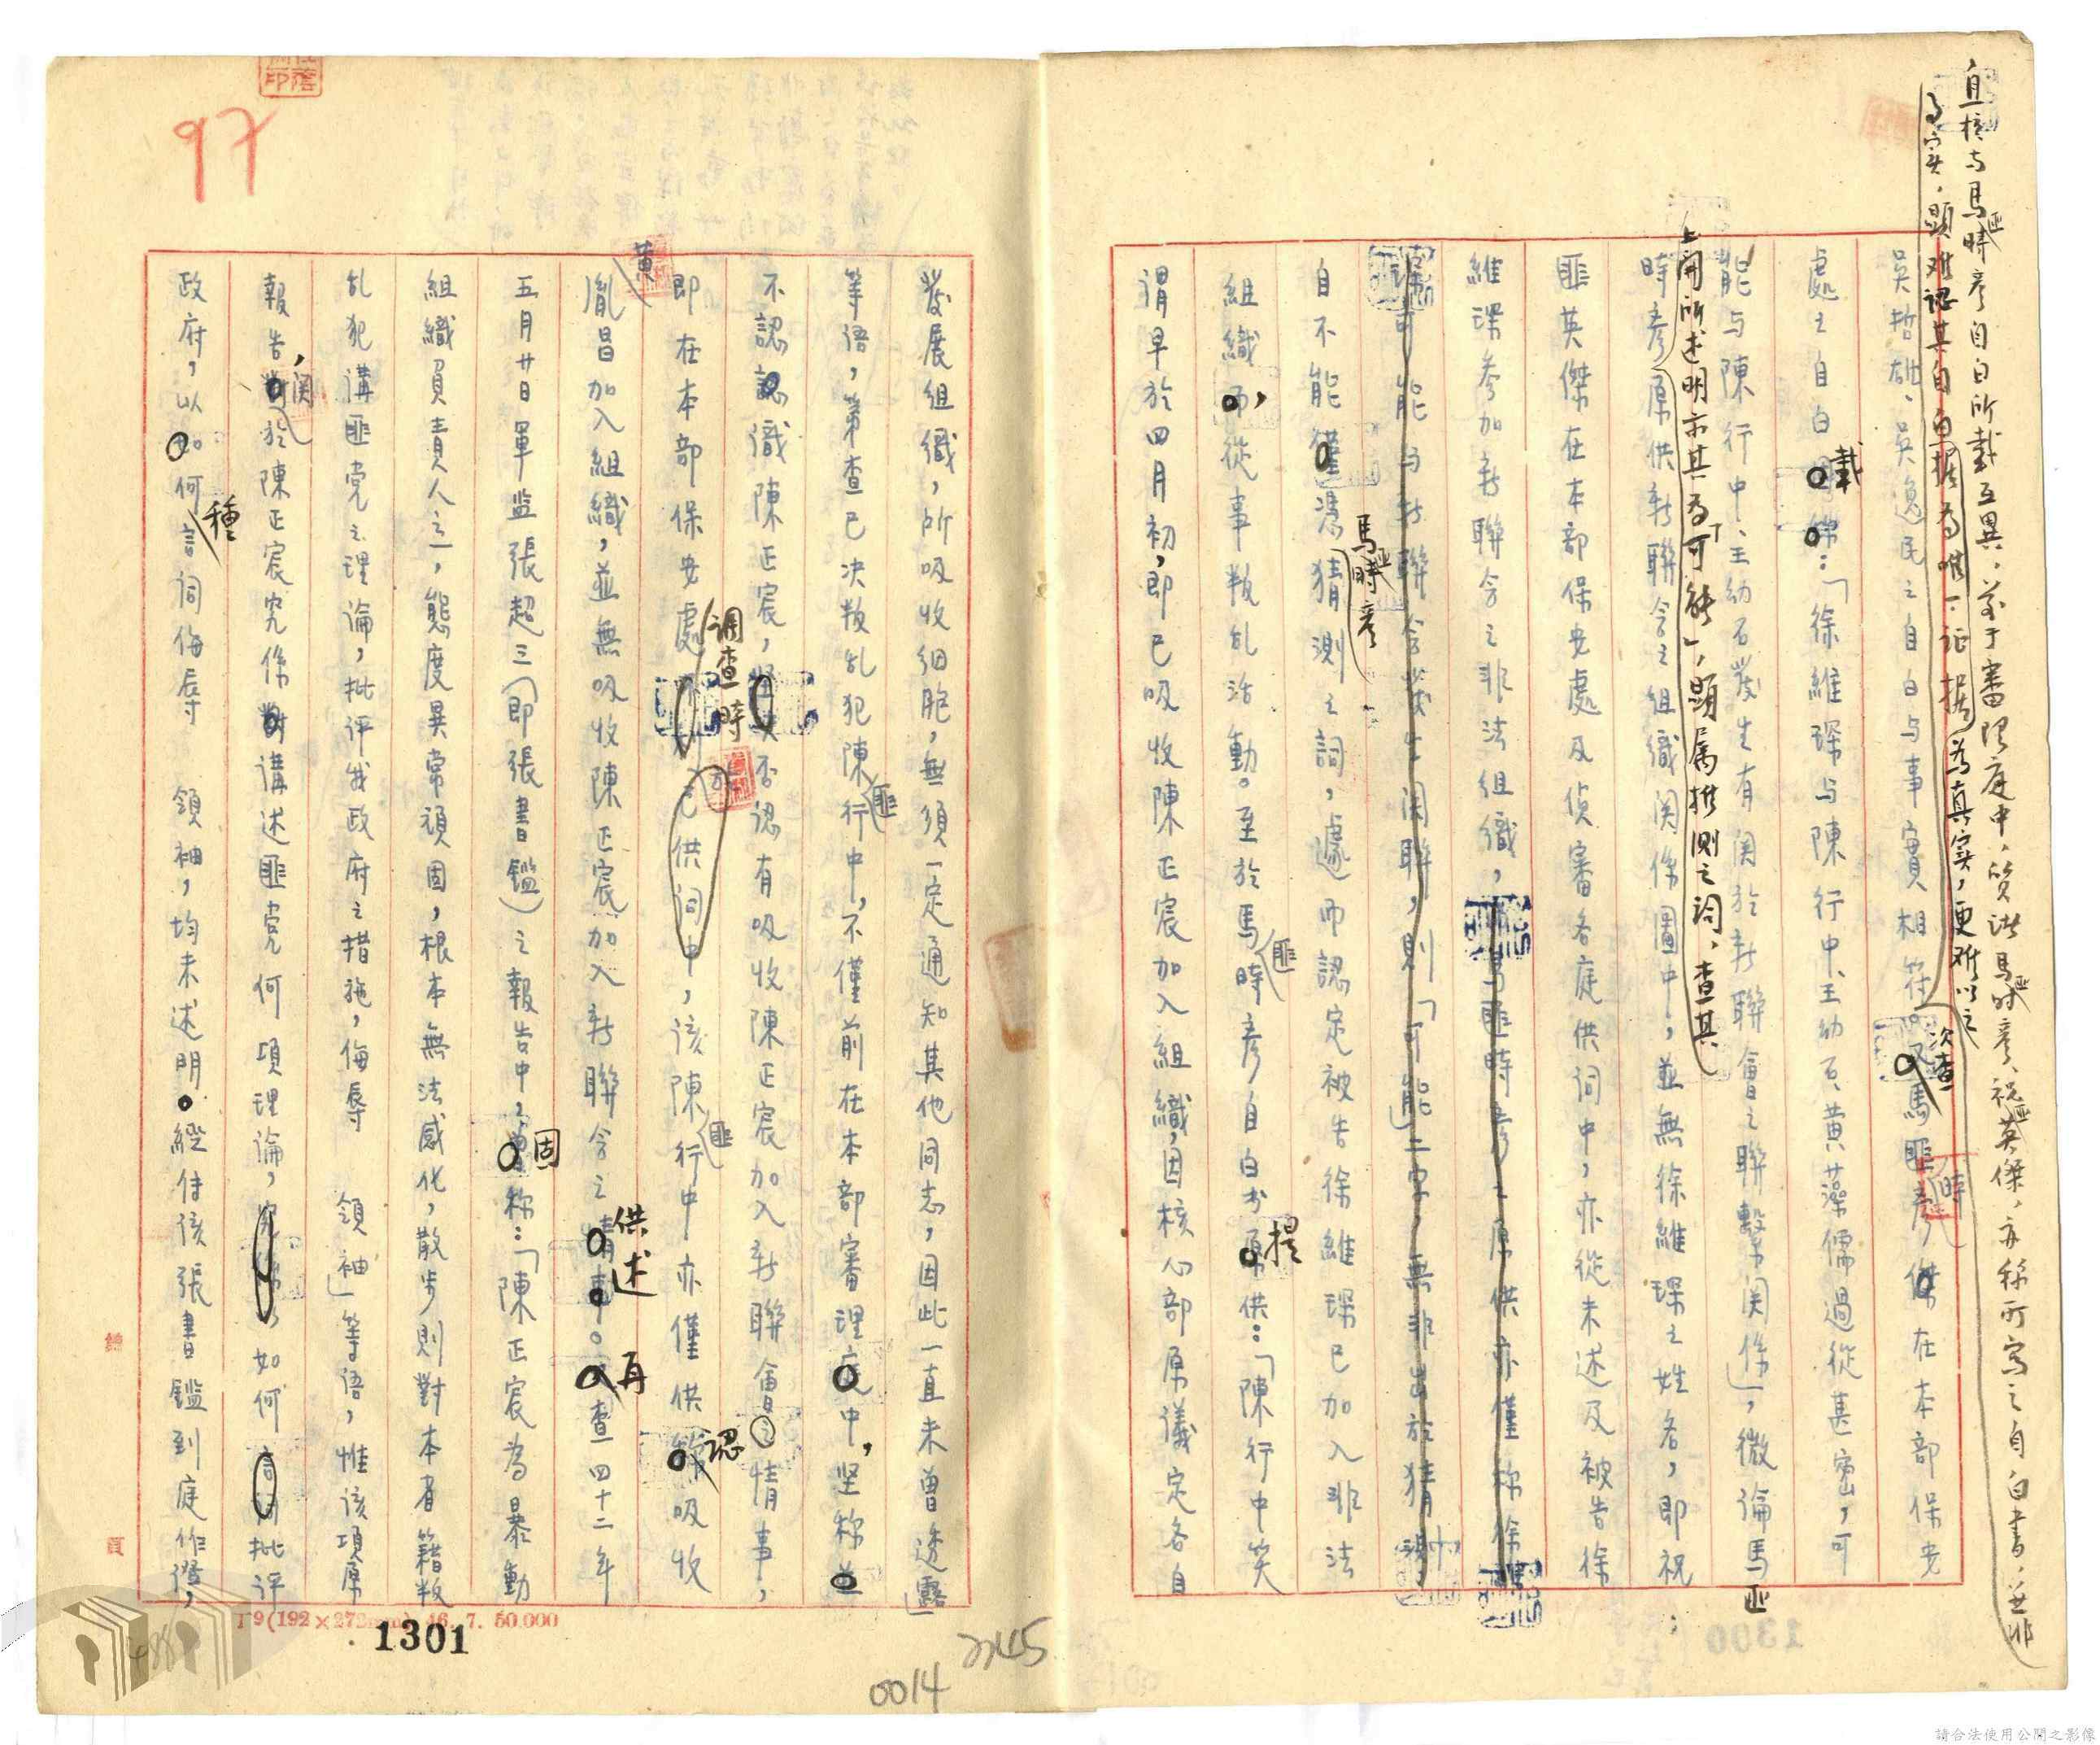 且核与馬匪時彥自白所載互異，於審理庭中，質訊馬匪時彥、祝匪英傑，亦稱所寫之自白書，並非
為實，顯难認其自白據為唯一証據為真实，更难以之
吳哲雄、吳逸民之自白与事實相符。次查馬匪時彥在本部保安
處之自白載：「徐維琛与陳行中、王幼石、黄藻儒過從甚密，可
能与陳行中、王幼石發生有関於新聯會之聯繫関係」，微論馬匪
上開所述明示其為「可能」，顯属推測之詞，查其
時彥原供新聯会之組織関係圖中，並無徐維琛之姓名，即祝
匪英傑在本部保安處及偵審各庭供詞中，亦從未述及被告徐
維琛參加新聯会之非法組織，馬匪時彥之原供亦僅称徐維
琛可能与新聯会發生関聯，則「可能」二字，無非出於猜測
自不能憑馬匪時彥猜測之詞，遽而認定被告徐維琛已加入非法
組織，從事叛乱活動。至於馬匪時彥自白書提供：「陳行中笑
謂早於四月初，即已吸收陳正宸加入組織，因核心部原議定各自
發展組織，所吸收细胞，無須一定通知其他同志，因此一直未曾透露」
等語，第查已决叛乱犯陳匪行中，不僅前在本部審理中，坚称
不認識陳正宸，否認有吸收陳正宸加入新聯會之情事，
即在本部保安處調查時供詞中，該陳匪行中亦僅供認吸收
黄胤昌加入組織，並無吸收陳正宸加入新聯会之供述。再查四十二年
五月廿日軍监張超三（即張書鑑）之報告中，固称：「陳正宸為暴動
組織負責人之一，態度異常頑固，根本無法感化，散步則對本者籍叛
乱犯講匪党之理論，批评我政府之措施，侮辱　領袖」等語，惟該項原
報告，関於陳正宸究係講述匪党何項理論，如何批评
政府，以何種言詞侮辱　領袖，均未述明。經传該張書鑑到庭作證，
97
1301
0014
2245
T9(192×272mm) 46. 7. 50.000
頁
請合法使用公開之影像